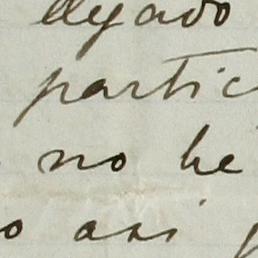 llegado
partic
no he
o asi